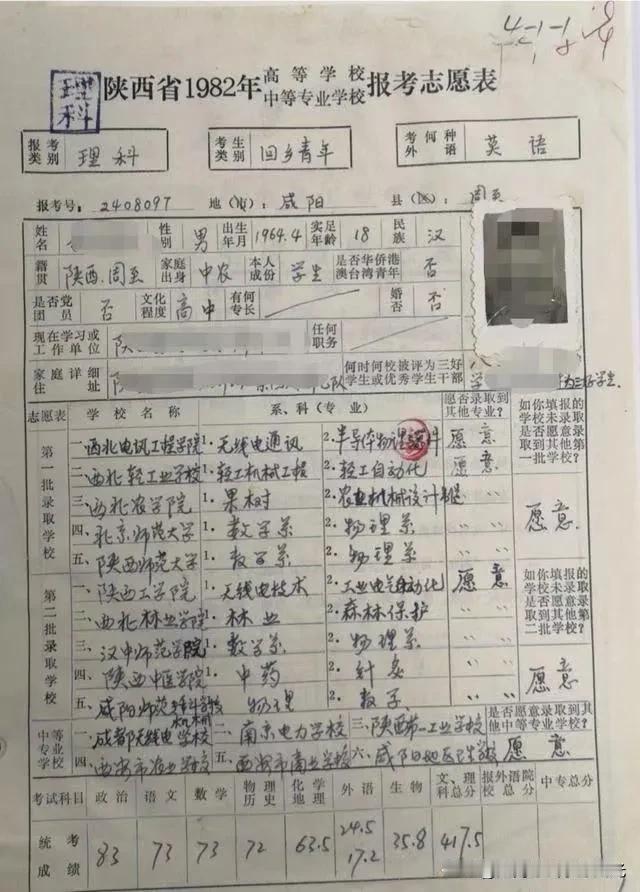 4-1-1
理科
陕西省1982年 高等学校 中等专业学校 报考志愿表
报考类别 理科 考生类别 回乡青年 考何种外语 英语
报考号 2408097 地(市) 咸阳 县(区) 周至
姓名 性别 男 出生年月 1964.4 实足年龄 18 民族 汉
籍贯 陕西.周至 家庭出身 中农 本人成份 学生 是否华侨港澳台湾青年 否
是否党团员 否 文化程度 高中 有何专长 婚否 否
现在学习或工作单位 陕 任何职务
家庭详细住址 何时何校被评为三好学生或优秀学生干部 为三好学生.
志愿表 学校名称 系、科(专业) 愿否录取到其他专业? 如你填报的学校未录取是否愿意录取到其他第一批学校?
第一批录取学校
一、西北电讯工程学院 1.无线电通讯 2.半导体物理 愿意
二、西北轻工业学校 1.轻工机械工程 2.轻工自动化 愿意
三、西北农学院 1.果树 2.农业机械设计制造 〃 〃
四、北京师范大学 1.数学系 2.物理系 〃 〃 愿意.
五、陕西师范大学 1.数学系 2.物理系 〃 〃
第二批录取学校
一、陕西工学院 1.无线电技术 2.工业电气自动化 愿意 如你填报的学校未录取是否愿意录取到其他第二批学校?
二、西北林业学院 1.林业 2.森林保护 〃 〃
三、汉中师范学院 1.数学系 2.物理系 〃 〃
四、陕西中医学院 1.中药 2.针灸 〃 〃 愿意
五、咸阳师范专科学校 物理 2.数学 〃 〃
中等专业学校 一、成都无线电机械学校 二、南京电力学校 三、陕西第一工业学校 是否愿意录取到其他中等专业学校?
四、西安市农业学校 五、西安市商业学校 六、咸阳地区卫生学校 愿意
考试科目 政治 语文 数学 物理 历史 化学 地理 外语 生物 文、理科总分 报外语院总分 中专总分
统考成绩 83 73 73 72 63.5 24.5 17.2 35.8 417.5